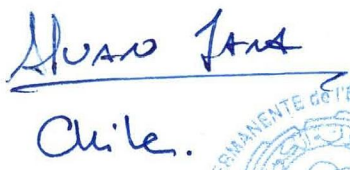 Alvaro Jana
Chile.
MANENTE de l'E